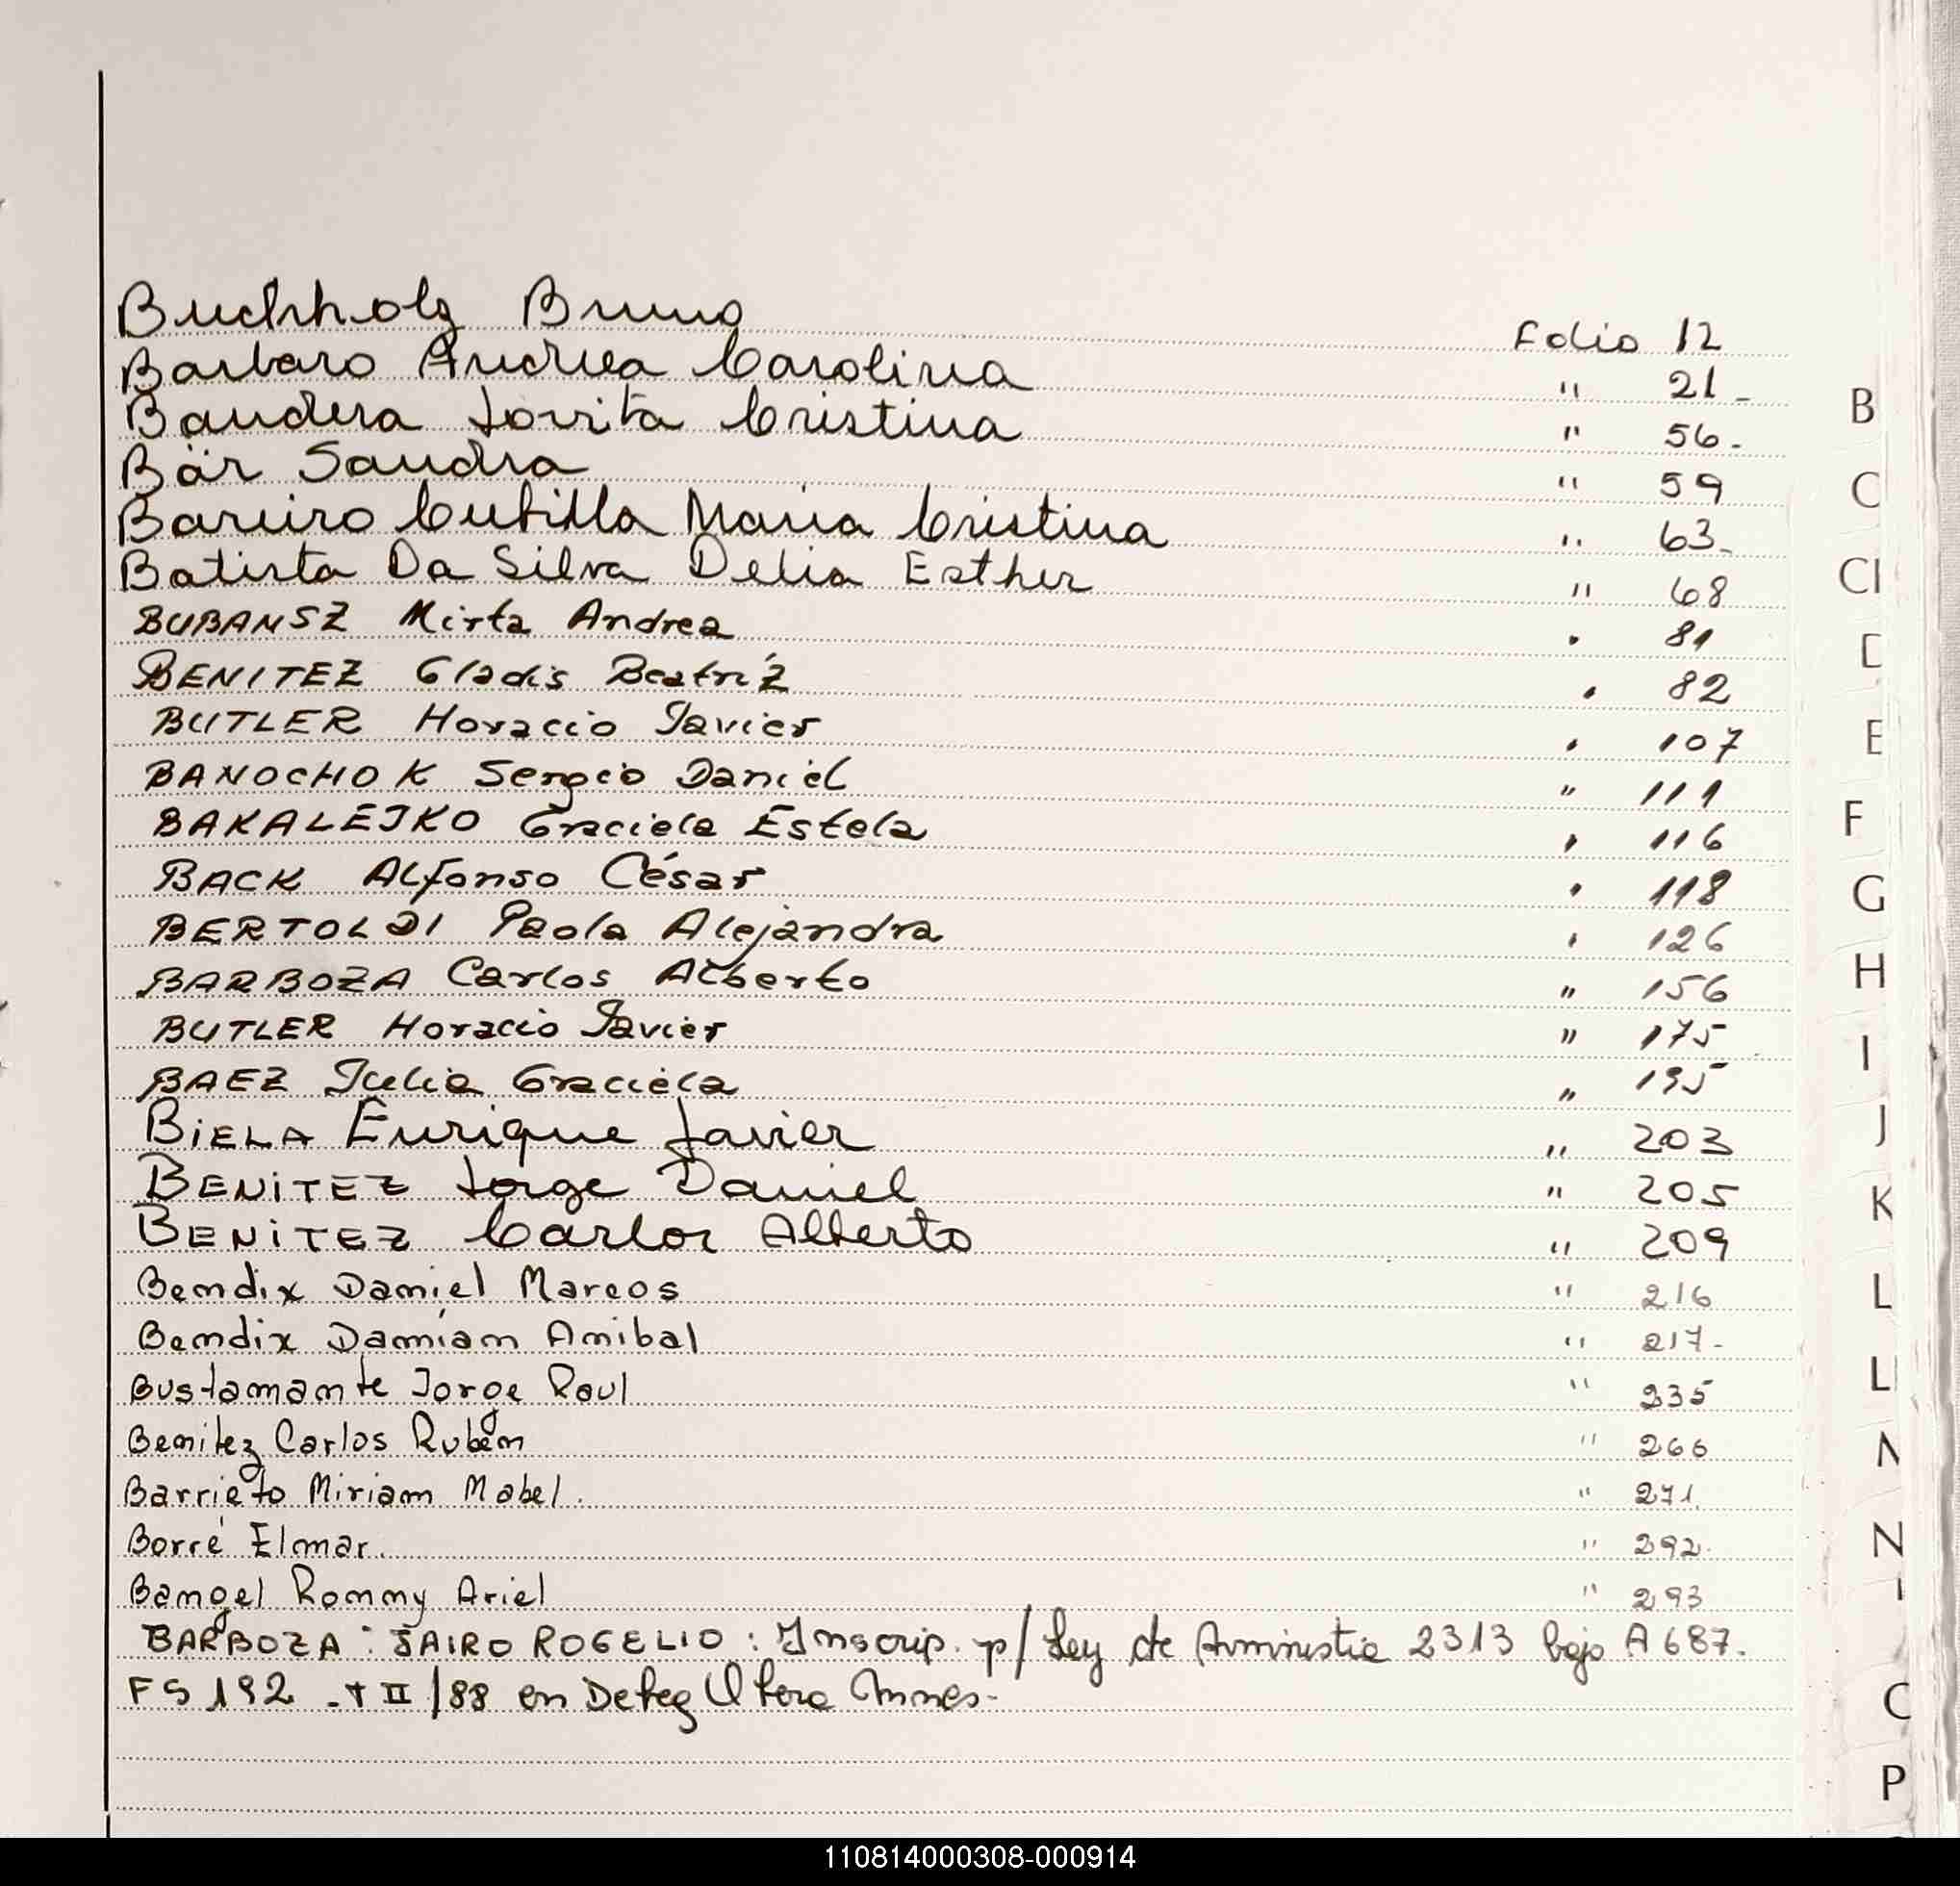 Buchholz Bruno Folio 12
Barbaro Andrea Carolina " 21-
Bandera Jovita Cristina " 56-
Bär Sandra " 59
Bareiro Cubilla Maria Cristina " 63-
Batista Da Silva Delia Esther " 68
BUBANSZ Mirta Andrea " 81
BENITEZ Gladis Beatríz " 82
BUTLER Horacio Javier " 107
BANOCHOK Sergio Daniel " 111
BAKALEJKO Graciela Estela " 116
BACK Alfonso César " 118
BERTOLDI Paola Alejandra " 126
BARBOZA Carlos Alberto " 156
BUTLER Horacio Javier " 175
BAEZ Julia Graciela " 195
BIELA Enrique Javier " 203
BENITEZ Jorge Daniel " 205
BENITEZ Carlos Alberto " 209
Bendix Daniel Marcos " 216
Bendix Damían Anibal " 217-
Bustamante Jorge Raul " 235
Benitez Carlos Rubén " 266
Barrieto Miriam Mabel. " 271.
Borré Elmar. " 292.
Bangel Rommy Ariel " 293
BARBOZA: JAIRO ROGELIO: Inscrip. p/ Ley de Aministia 2313 bajo A 687.
FS 192 - T II/88 en Deleg
B
C
CI
D
E
F
G
H
I
J
K
L
L
N
P
110814000308-000914